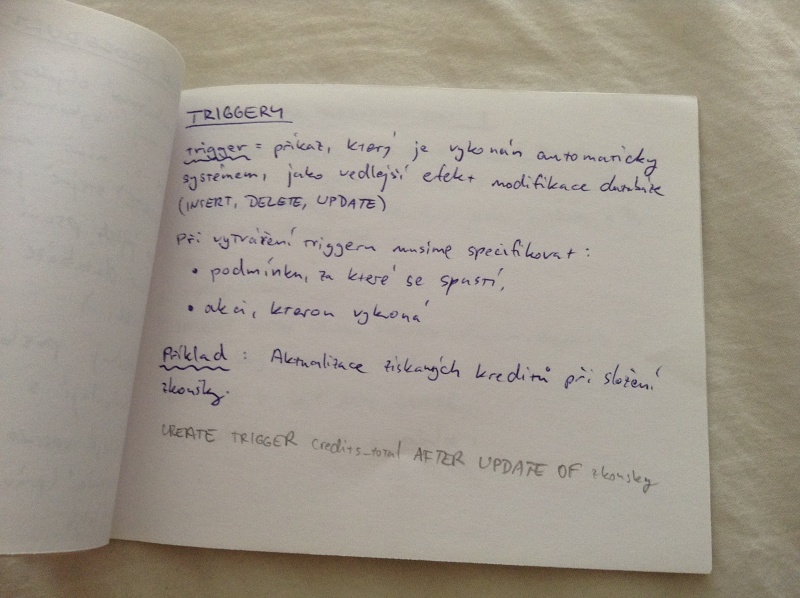 TRIGGERY
trigger = příkaz, který je vykonán automaticky
systémem, jako vedlejší efekt modifikace databáze
(INSERT, DELETE, UPDATE)
Při vytváření triggeru musíme specifikovat:
• podmínku, za které se spustí,
• akci, kterou vykoná
Příklad: Aktualizace získaných kreditů při složení
zkoušky.
CREATE TRIGGER credits_total AFTER UPDATE OF zkousky